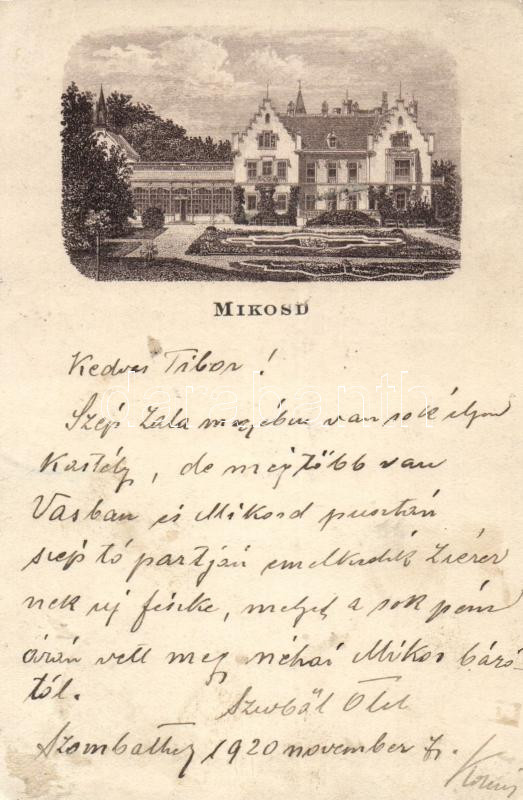 MIKOSD
Kedves Tibor!
Szép Zala megyében van sok ilyen
Kastély, de mégtöbb van
Vasban és Mikosd pusztán
szép tó partján emelkedik
nek új fészke, melyet a sok pénz
árán vett meg néhai Mikos báró
tól.
Ölel
Szombathely 1920 november
darabanth.com